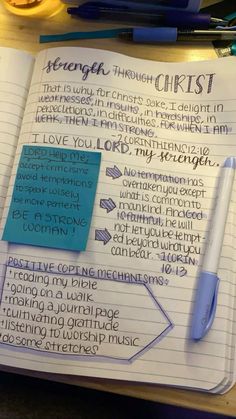 strength THROUGH CHRIST
That is why, for Christs sake, I delight in
weaknesses, in insults, in hardships, in
persecutions, in difficulties. FOR WHEN I AM
WEAK, THEN I AM STRONG.
- 2 CORINTHIANS 12:10
I LOVE YOU, LORD, my strength.
LORD HELP ME:
accept criticisms
avoid temptations
to speak wisely
be more patient
BE A STRONG
WOMAN!
No temptation has
overtaken you except
what is common to
mankind. And God
is faithful; he will
not let you be tempt-
ed beyond what you
can bear. - 1 COR IN.
10:13
POSITIVE COPING MECHANISMS:
• reading my bible
• going on a walk
• making a journal page
• cultivating gratitude
• listening to worship music
• do some stretches